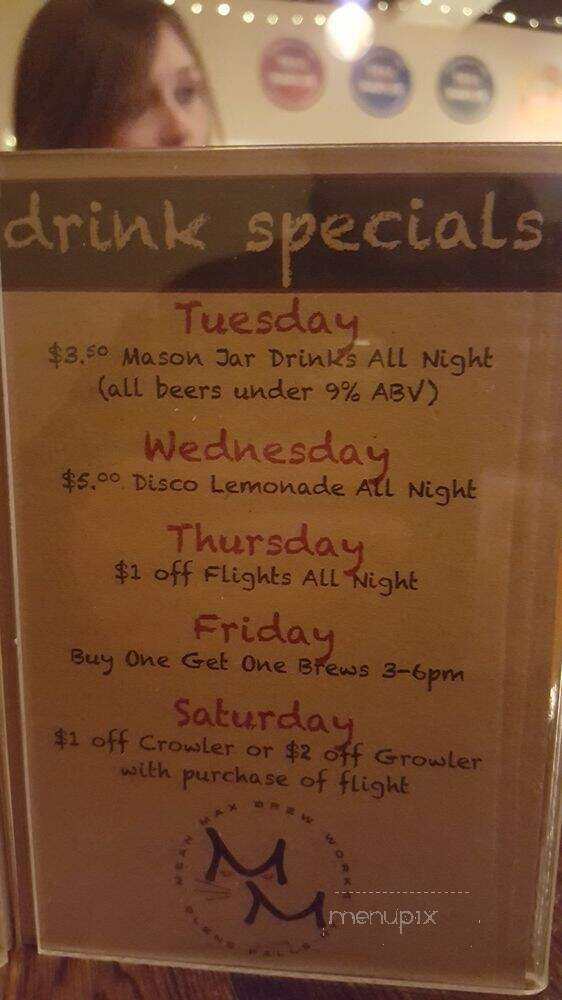 drink specials
Tuesday
$3.50 Mason Jar Drinks All Night
(all beers under 9% ABV)
Wednesday
$5.00 Disco Lemonade All Night
Thursday
$1 off Flights All Night
Friday
Buy One Get One Brews 3-6pm
Saturday
$1 off Crowler or $2 off Growler
with purchase of flight
MEAN MAX BREW WORKS
MM
GLENS FALLS
menupix